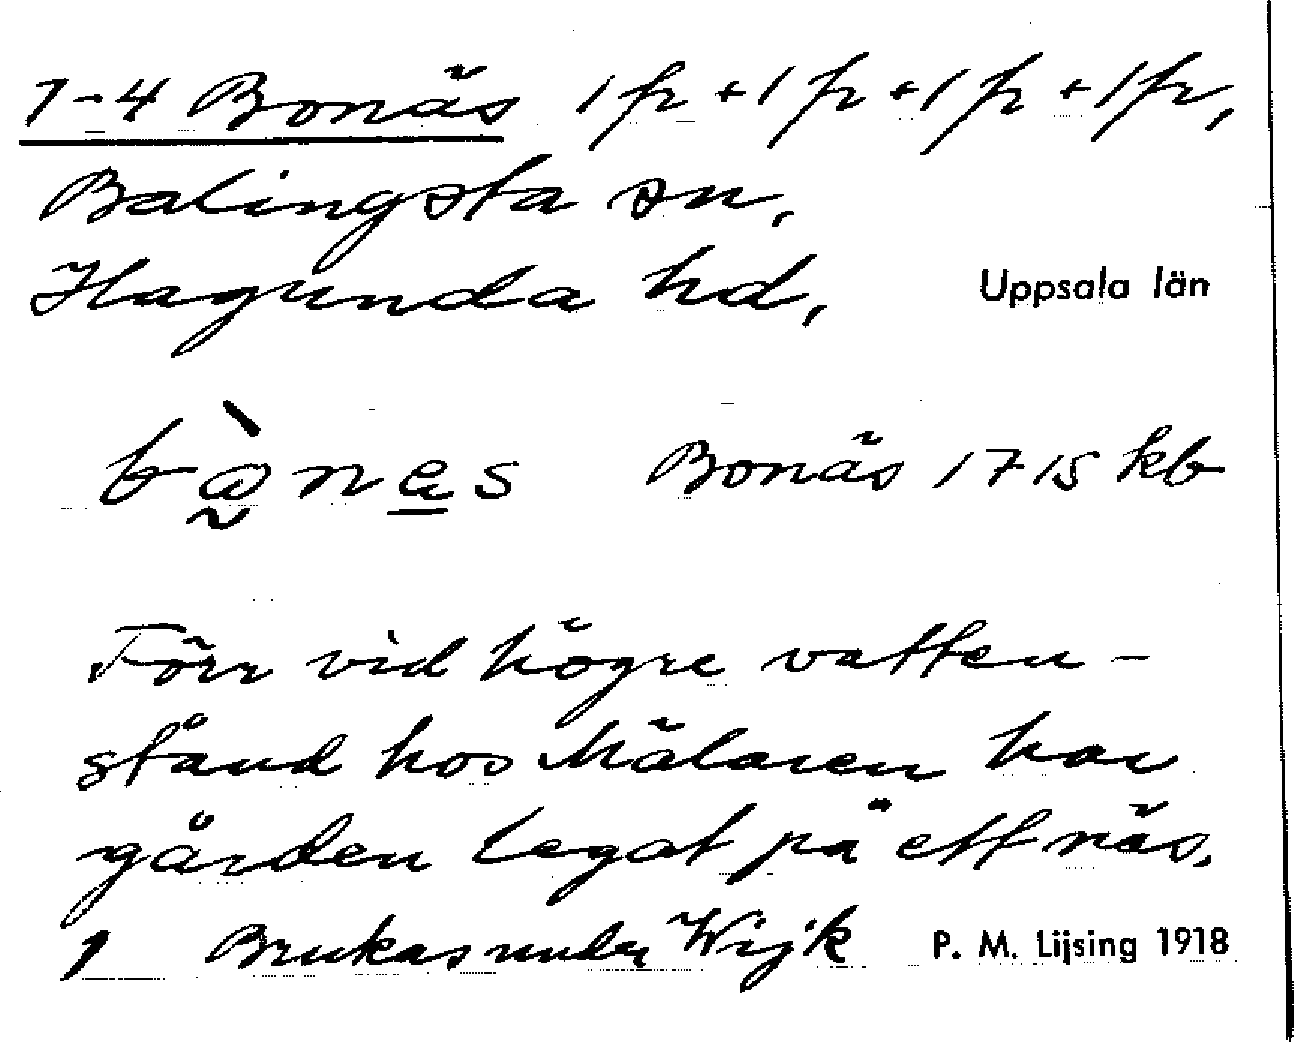 1-4 Bonäs 1 fr + 1 fr + 1 fr + 1 fr,
Balingsta sn,
Hagunda hd, Uppsala län
bò̰na̲s Bonäs 1715 kb
Förr vid högre vatten-
stånd hos Mälaren har
gården legat på ett näs.
1 Brukas under Wijk P. M. Lijsing 1918